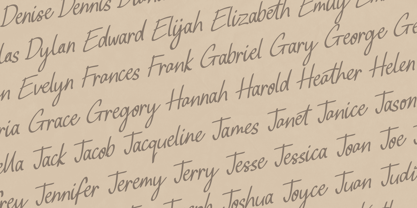 Denise Dennis
Dylan Edward Elijah Elizabeth Emily
Evelyn Frances Frank Gabriel Gary George
Grace Gregory Hannah Harold Heather Helen
Jack Jacob Jacqueline James Janet Janice Jason
Jennifer Jeremy Jerry Jesse Jessica Joan Joe
Joshua Joyce Juan